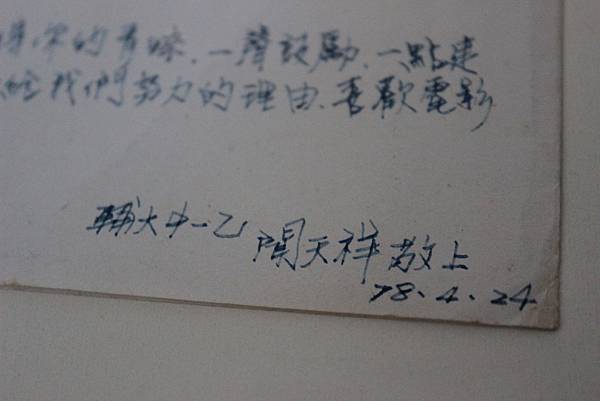 的青睞、一聲鼓勵、一點建
給我們努力的理由、喜歡電影
輔大中一乙 聞天祥敬上
78.4.24